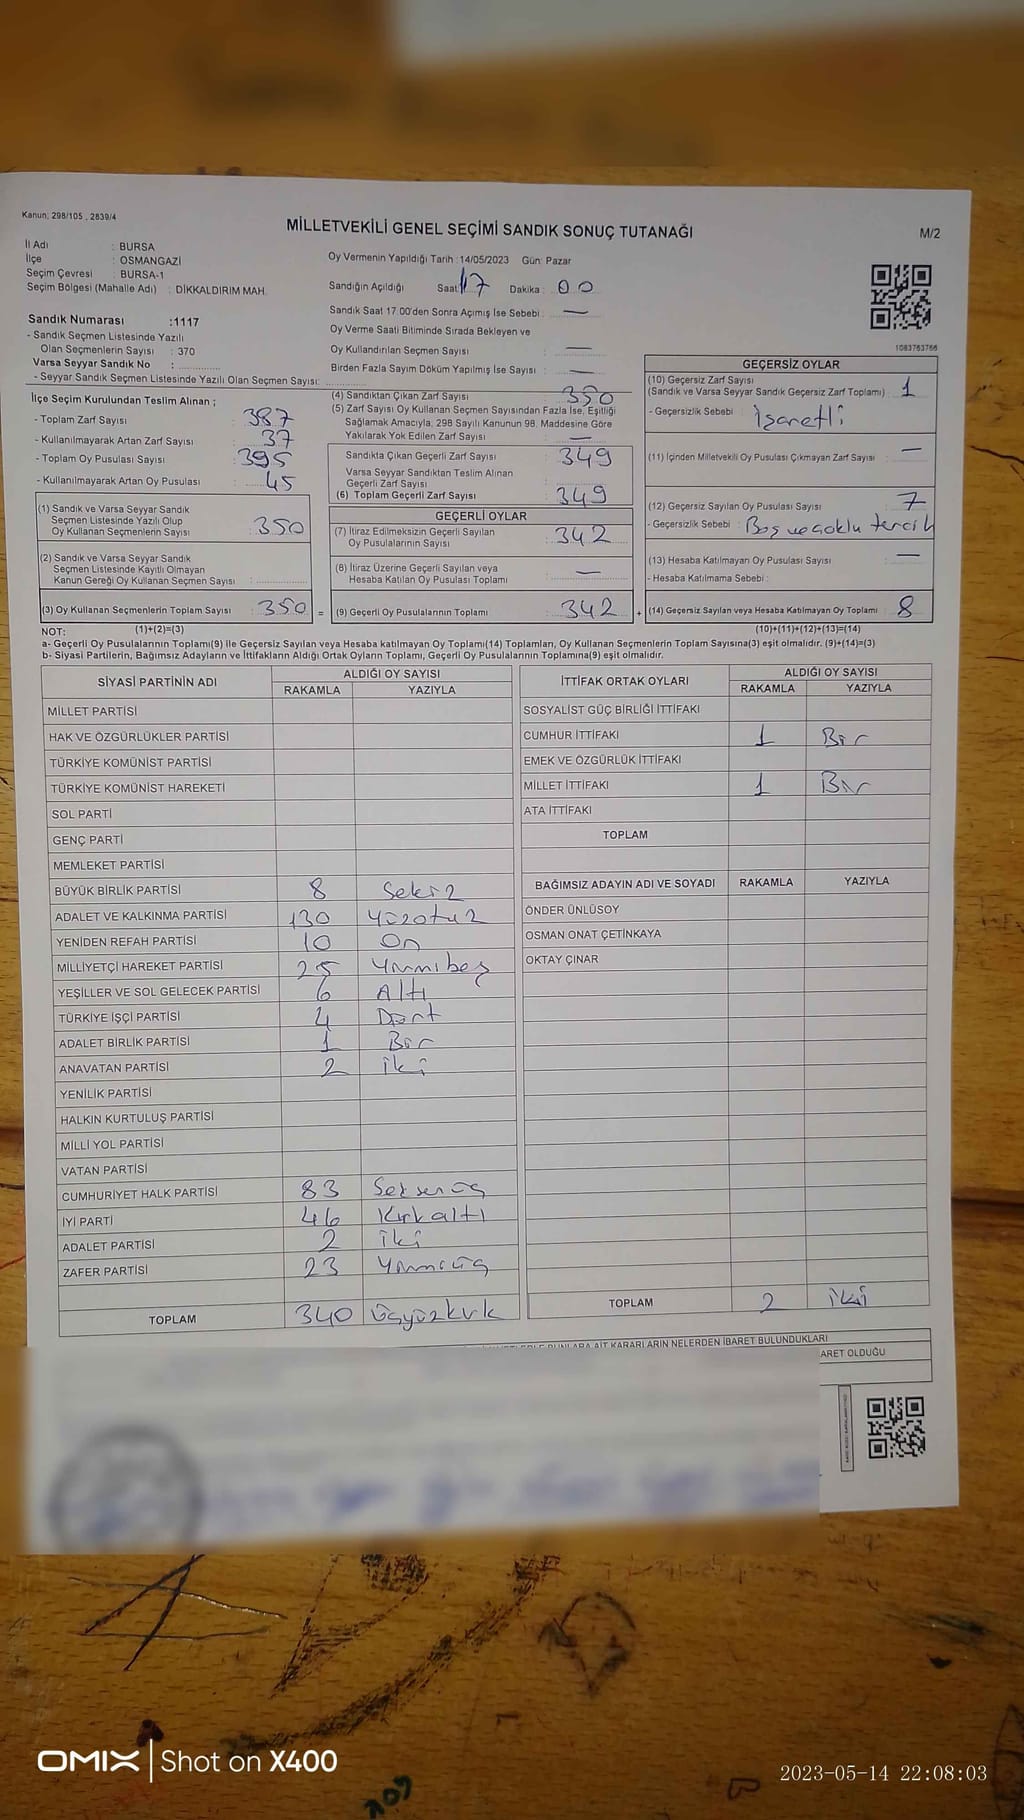 Kanun; 298/105 , 2839/4
MİLLETVEKİLİ GENEL SEÇİMİ SANDIK SONUÇ TUTANAĞI
M/2
İl Adı : BURSA
İlçe : OSMANGAZİ
Seçim Çevresi : BURSA-1
Seçim Bölgesi (Mahalle Adı) : DİKKALDIRIM MAH.
Oy Vermenin Yapıldığı Tarih :14/05/2023 Gün: Pazar
Sandığın Açıldığı Saat 17 Dakika : 00
Sandık Saat 17.00'den Sonra Açımış İse Sebebi : —
Oy Verme Saati Bitiminde Sırada Bekleyen ve
Oy Kullandırılan Seçmen Sayısı : —
Birden Fazla Sayım Döküm Yapılmış İse Sayısı : —
1083763766
Sandık Numarası :1117
- Sandık Seçmen Listesinde Yazılı
Olan Seçmenlerin Sayısı : 370
Varsa Seyyar Sandık No :
- Seyyar Sandık Seçmen Listesinde Yazılı Olan Seçmen Sayısı:
İlçe Seçim Kurulundan Teslim Alınan ;
- Toplam Zarf Sayısı : 387
- Kullanılmayarak Artan Zarf Sayısı : 37
- Toplam Oy Pusulası Sayısı : 395
- Kullanılmayarak Artan Oy Pusulası : 45
(1) Sandık ve Varsa Seyyar Sandık
Seçmen Listesinde Yazılı Olup
Oy Kullanan Seçmenlerin Sayısı : 350
(2) Sandık ve Varsa Seyyar Sandık
Seçmen Listesinde Kayıtlı Olmayan
Kanun Gereği Oy Kullanan Seçmen Sayısı :
(3) Oy Kullanan Seçmenlerin Toplam Sayısı : 350 =
(4) Sandıktan Çıkan Zarf Sayısı : 350
(5) Zarf Sayısı Oy Kullanan Seçmen Sayısından Fazla İse, Eşitliği
Sağlamak Amacıyla, 298 Sayılı Kanunun 98. Maddesine Göre
Yakılarak Yok Edilen Zarf Sayısı : —
Sandıkta Çıkan Geçerli Zarf Sayısı : 349
Varsa Seyyar Sandıktan Teslim Alınan
Geçerli Zarf Sayısı :
(6) Toplam Geçerli Zarf Sayısı : 349
GEÇERLİ OYLAR
(7) İtiraz Edilmeksizin Geçerli Sayılan
Oy Pusulalarının Sayısı : 342
(8) İtiraz Üzerine Geçerli Sayılan veya
Hesaba Katılan Oy Pusulası Toplamı : —
(9) Geçerli Oy Pusulalarının Toplamı : 342 +
GEÇERSİZ OYLAR
(10) Geçersiz Zarf Sayısı
(Sandık ve Varsa Seyyar Sandık Geçersiz Zarf Toplamı) : 1
- Geçersizlik Sebebi : İşaretli
(11) İçinden Milletvekili Oy Pusulası Çıkmayan Zarf Sayısı : —
(12) Geçersiz Sayılan Oy Pusulası Sayısı : 7
- Geçersizlik Sebebi : Boş ve çoklu tercih
(13) Hesaba Katılmayan Oy Pusulası Sayısı : —
- Hesaba Katılmama Sebebi :
(14) Geçersiz Sayılan veya Hesaba Katılmayan Oy Toplamı : 8
NOT: (1)+(2)=(3)
(10)+(11)+(12)+(13)=(14)
a- Geçerli Oy Pusulalarının Toplamı(9) ile Geçersiz Sayılan veya Hesaba katılmayan Oy Toplamı(14) Toplamları, Oy Kullanan Seçmenlerin Toplam Sayısına(3) eşit olmalıdır. (9)+(14)=(3)
b- Siyasi Partilerin, Bağımsız Adayların ve İttifakların Aldığı Ortak Oyların Toplamı, Geçerli Oy Pusulalarının Toplamına(9) eşit olmalıdır.
SİYASİ PARTİNİN ADI ALDIĞI OY SAYISI
RAKAMLA YAZIYLA
MİLLET PARTİSİ
HAK VE ÖZGÜRLÜKLER PARTİSİ
TÜRKİYE KOMÜNİST PARTİSİ
TÜRKİYE KOMÜNİST HAREKETİ
SOL PARTİ
GENÇ PARTİ
MEMLEKET PARTİSİ
BÜYÜK BİRLİK PARTİSİ 8 Sekiz
ADALET VE KALKINMA PARTİSİ 130 Yüzotuz
YENİDEN REFAH PARTİSİ 10 On
MİLLİYETÇİ HAREKET PARTİSİ 25 Yirmibeş
YEŞİLLER VE SOL GELECEK PARTİSİ 6 Altı
TÜRKİYE İŞÇİ PARTİSİ 4 Dört
ADALET BİRLİK PARTİSİ 1 Bir
ANAVATAN PARTİSİ 2 iki
YENİLİK PARTİSİ
HALKIN KURTULUŞ PARTİSİ
MİLLİ YOL PARTİSİ
VATAN PARTİSİ
CUMHURİYET HALK PARTİSİ 83 Seksenüç
İYİ PARTİ 46 Kırkaltı
ADALET PARTİSİ 2 iki
ZAFER PARTİSİ 23 Yirmiüç
TOPLAM 340 Üçyüzkırk
İTTİFAK ORTAK OYLARI ALDIĞI OY SAYISI
RAKAMLA YAZIYLA
SOSYALİST GÜÇ BİRLİĞİ İTTİFAKI
CUMHUR İTTİFAKI 1 Bir
EMEK VE ÖZGÜRLÜK İTTİFAKI
MİLLET İTTİFAKI 1 Bir
ATA İTTİFAKI
TOPLAM
BAĞIMSIZ ADAYIN ADI VE SOYADI RAKAMLA YAZIYLA
ÖNDER ÜNLÜSOY
OSMAN ONAT ÇETİNKAYA
OKTAY ÇINAR
TOPLAM 2 iki
KARARLARIN NELERDEN İBARET BULUNDUKLARI
ARET OLDUĞU
OMIX Shot on X400
2023-05-14 22:08:03